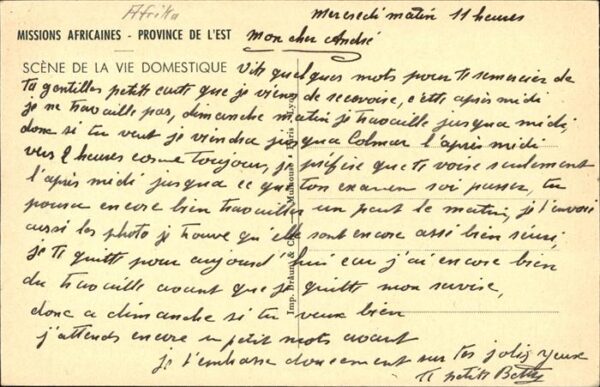 Afrika
Mercredi matin 11 heures
MISSIONS AFRICAINES - PROVINCE DE L'EST
Mon cher André
SCÈNE DE LA VIE DOMESTIQUE
Vite quelques mots pour te remercier de
ta gentilles petits carte que je viens de recevoire, cette après midi
je ne travaille pas, dimanche matin je travaille jusqua midi,
donc si tu veut je viendra jusqua Colmar l'après midi
vers 2 heures come toujour, je préfère que te voise seulement
l'après midi jusqua ce que ton examen soi passer, tu
poura encore bien travailler un peut le matin, je t'envoi
aussi les photo je trouve qu'elle sont encore assé bien
je te quitte pour aujourd'hui car j'ai encore bien
du travaille avant que je quitte mon servise,
donc a dimanche si tu veux bien
j'attends encore un petit mots avant
je t'embrasse doucement sur tes jolis yeux
Ta petite Betty
Imp. Braun & Cie, Mulhouse Paris Lyon